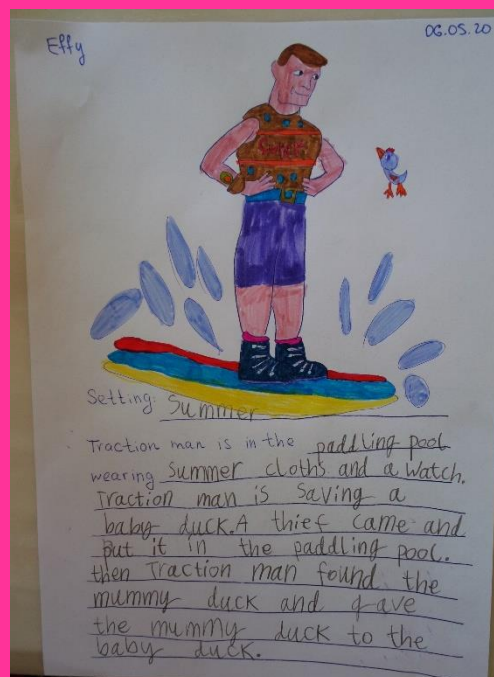 Effy
06.05.20
Setting: Summer
Traction man is in the paddling pool
wearing summer cloths and a watch.
Traction man is saving a
baby duck. A thief came and
put it in the paddling pool.
then Traction man found the
mummy duck and gave
the mummy duck to the
baby duck.